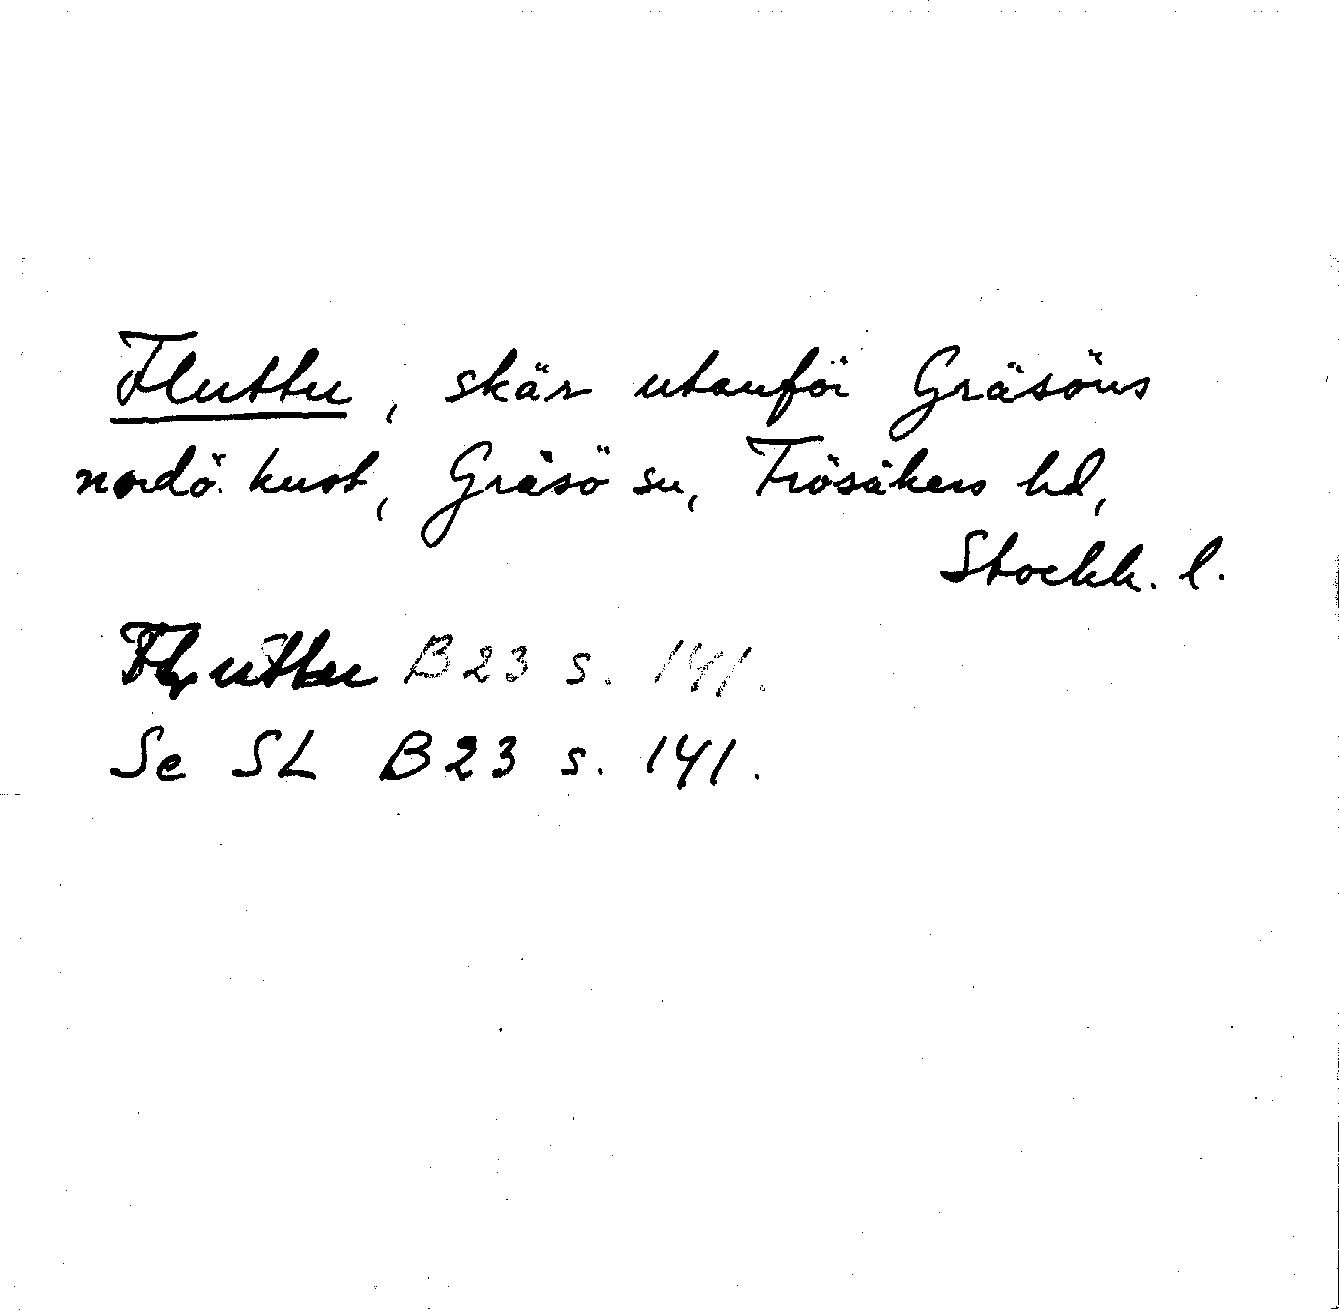 Fluttu, skär utanför Gräsöns
nordö. kust, Gräsö sn, Frösåkers hd,
Stockh. l.
Fluttu B23 s. 141.
Se SL B23 s. 141.